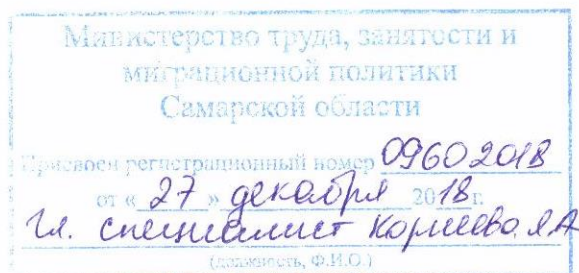 Министерство труда, занятости и
миграционной политики
Самарской области
Присвоен регистрационный номер 09602018
от « 27 » декабря 2018 г.
Гл. специалист Корнеева ЛА
(должность, Ф.И.О.)